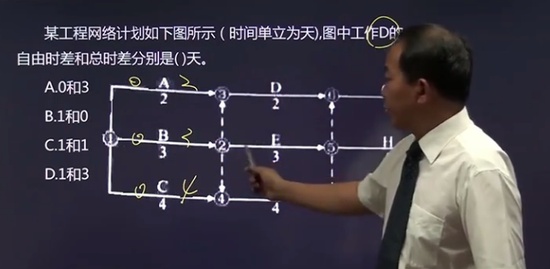 某工程网络计划如下图所示（时间单立为天),图中工作D的
自由时差和总时差分别是( )天。
A.0和3
B.1和0
C.1和1
D.1和3
0 A 2
2
③
D
2
①
0 B 3
3
②
E
3
⑤
H
0 C 4
4
④
4